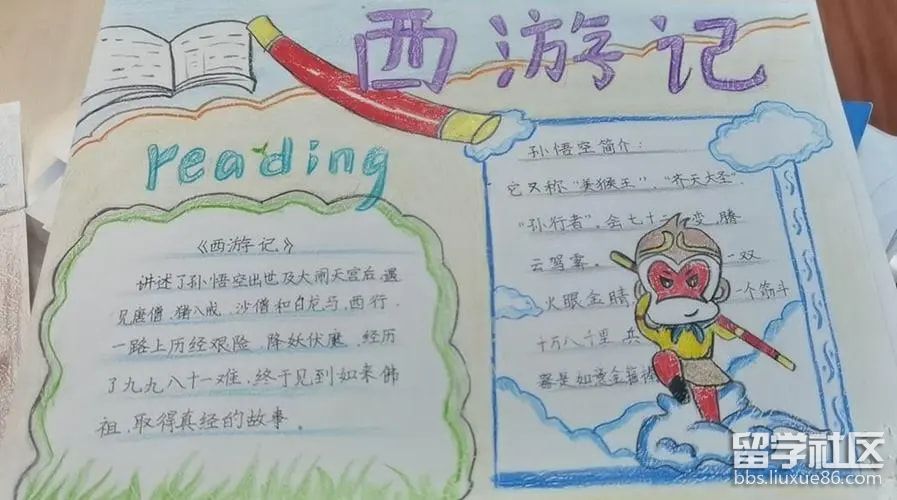 西游记
reading
《西游记》
讲述了孙悟空出世及大闹天宫后,遇
见唐僧、猪八戒、沙僧和白龙马,西行
一路上历经艰险,降妖伏魔,经历
了九九八十一难,终于见到如来佛
祖,取得真经的故事
孙悟空简介:
它又称"美猴王"、"齐天大圣"
"孙行者",会七十二变,腾
云驾雾。 一双
火眼金睛 一个筋斗
十万八千里,兵
器是如意金箍棒
留学社区
bbs.liuxue86.com